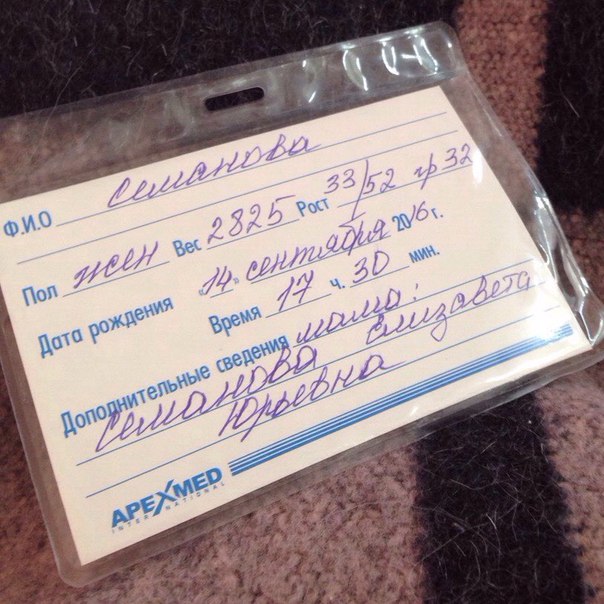 Ф.И.О Семанова
Пол жен Вес 2825 Рост 33/52 гр 32
Дата рождения «14» сентября 2016 г.
Время 17 ч. 30 мин.
Дополнительные сведения мама:
Семанова Елизавета
Юрьевна
APEXMED
INTERNATIONAL